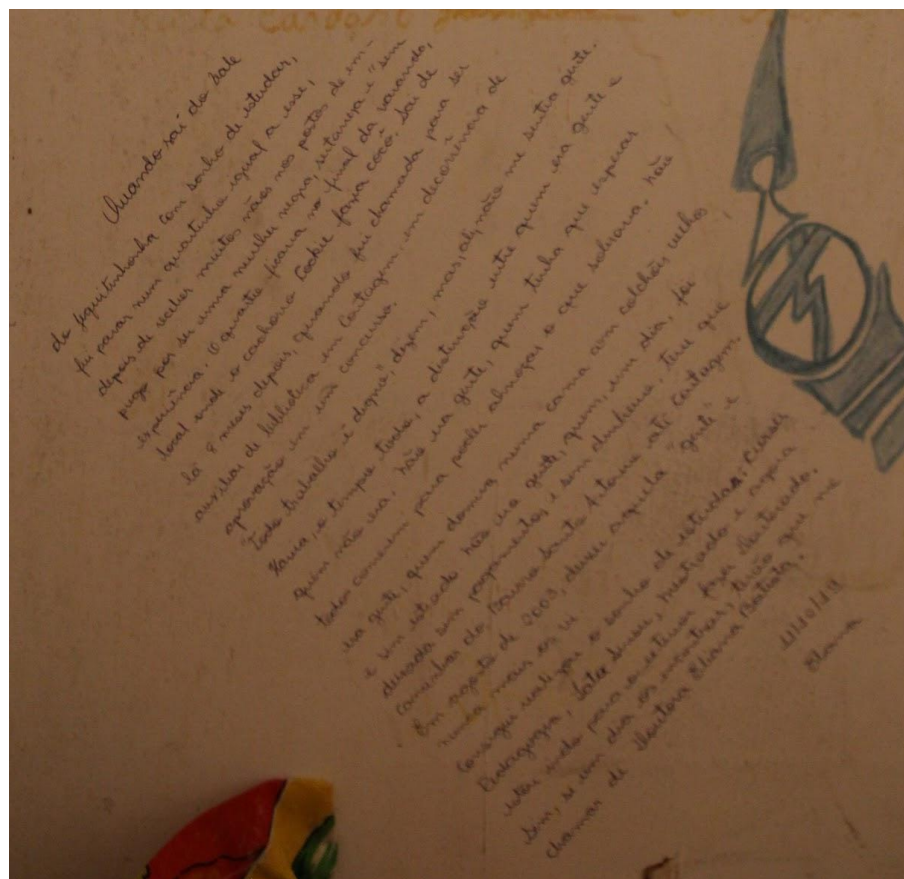 Quando saí do Vale
do Jequitinhonha com sonho de estudar,
fui parar num quartinho igual a esse,
depois de receber muitos nãos nos postos de em-
prego por ser uma mulher negra, sertaneja e "sem
experiência. O quarto ficava no final da varanda,
local onde o cachorro Cookie fazia cocô. Saí de
lá 8 meses depois, quando fui chamada para ser
auxiliar de biblioteca em Contagem, em decorrência de
aprovação em um concurso.
"Todo trabalho é digno", dizem, mas, ali, não me sentia gente.
Havia, o tempo todo, a distinção entre quem era gente e
quem não era. Não era gente, quem tinha que esperar
todos comerem para poder almoçar o que sobrava. Não
era gente, quem dormia numa cama com colchões velhos
e um estrado. Não era gente, quem, um dia, foi
deixada sem pagamentos e sem dinheiro, teve que
caminhar do Bairro Santo Antônio até Contagem.
Em agosto de 2003, deixei aquela "gente" e
nunca mais os vi
Consegui realizar o sonho de estudar. Cursei
Pedagogia, Lato Sensu, mestrado e agora
estou indo para o exterior fazer doutorado.
Sim, se um dia os encontrar, terão que me
chamar de Doutora Eliana Batista.
11/10/18
Eliana